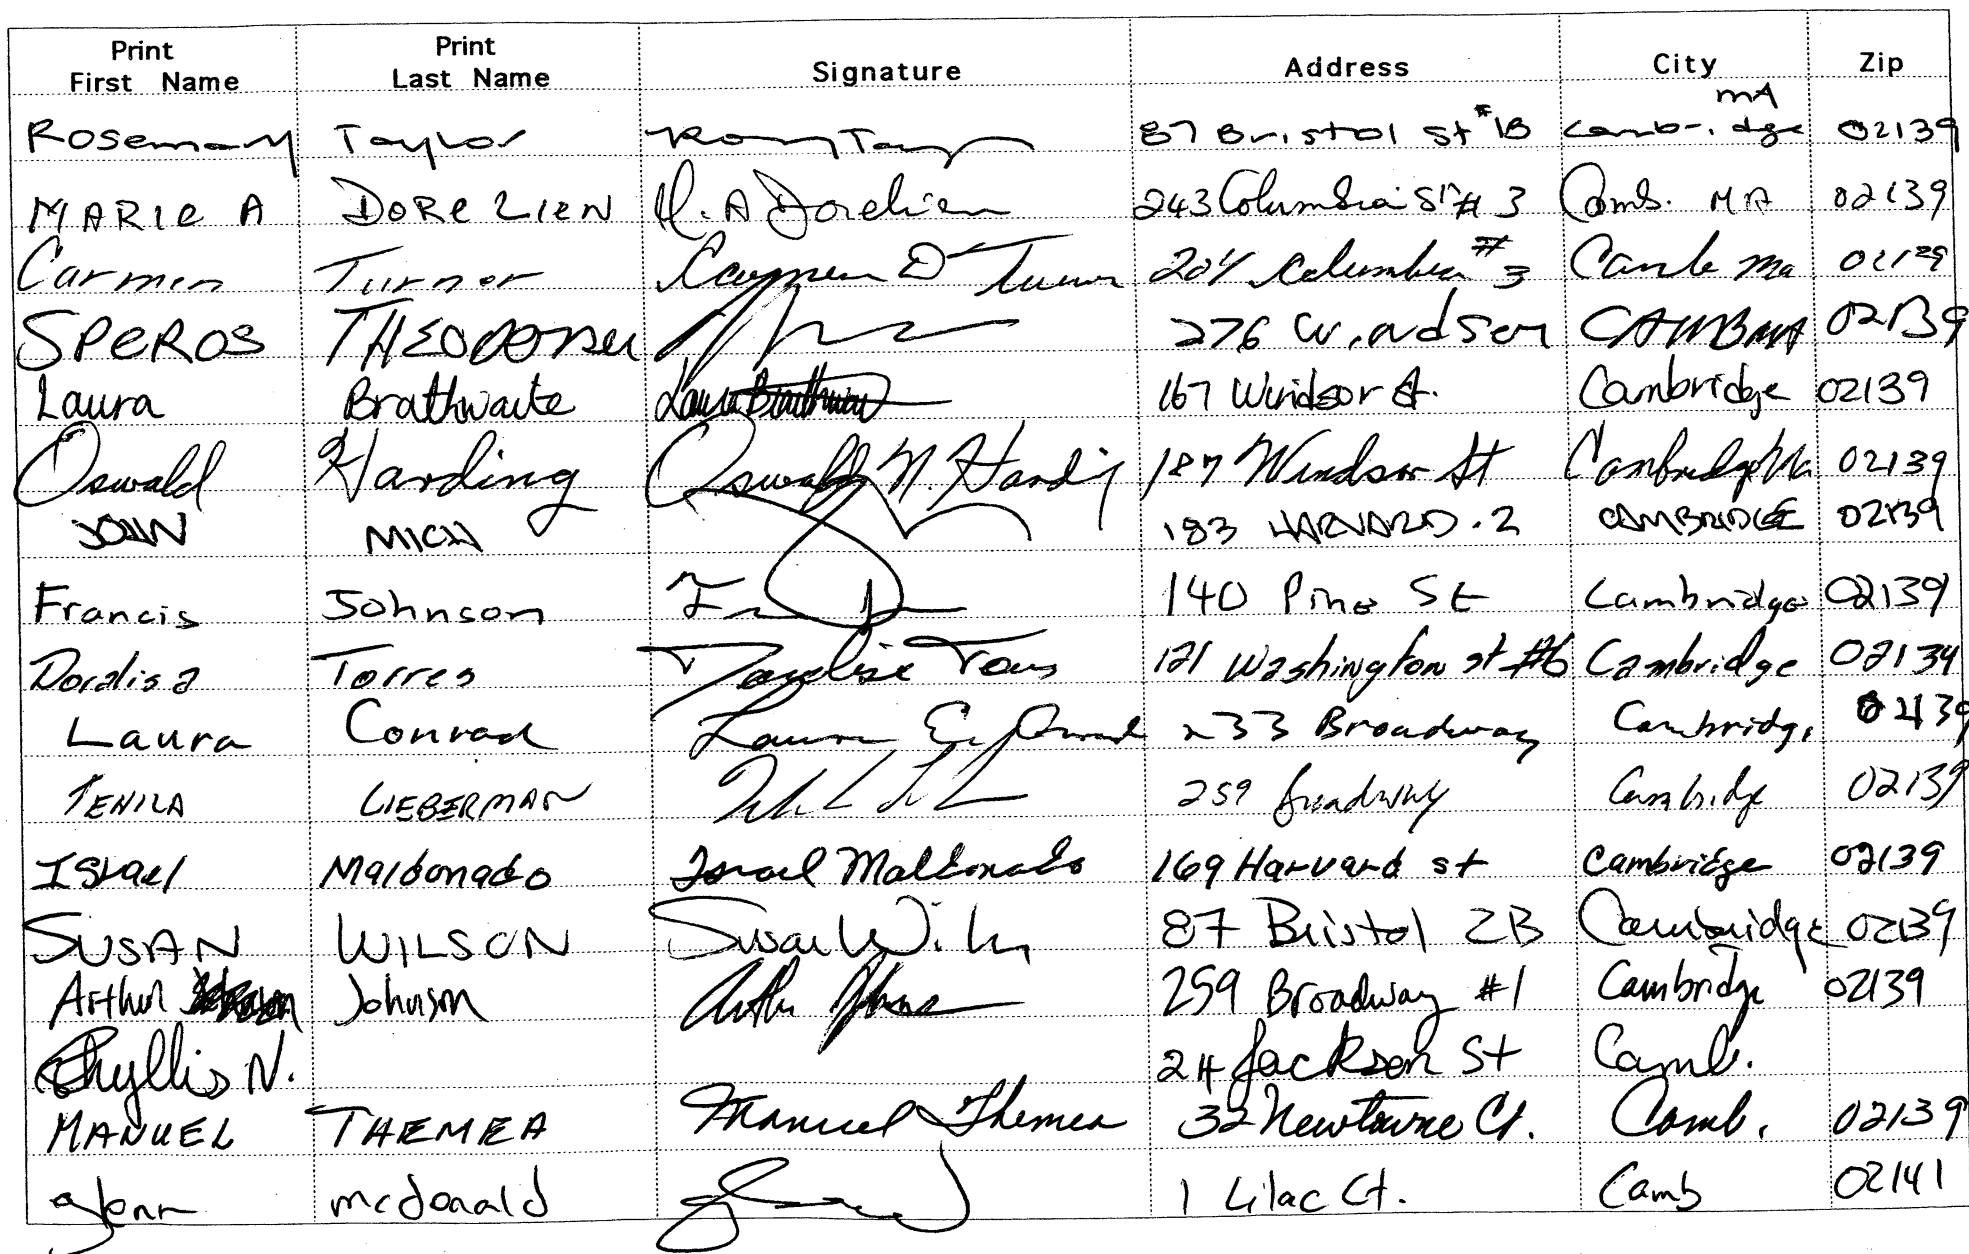 Print First Name Print Last Name Signature Address City Zip
Rosemary Taylor 87 Bristol St #1B Cambridge mA 02139
MARIE A DORELIEN M. A Dorelien 243 Columbia St # 3 Camb. MA 02139
Carmen Turner Carmen D Turner 204 Columbia # 3 Camb Ma 02139
SPEROS 276 Windsor CAMB MA 02139
Laura Brathwaite Laura Brathwaite 167 Windsor St. Cambridge 02139
Oswald Harding Oswald N. Harding 187 Windsor St Cambridge Ma 02139
JOHN MICH 183 HARVARD . 2 CAMBRIDGE 02139
Francis Johnson 140 Pine St Cambridge 02139
Doralisa Torres Torres 121 Washington st #6 Cambridge 02134
Laura Conrad Laura E. Conrad 233 Broadway Cambridge 02139
TEHILA LIEBERMAN 259 Broadway Cambridge 02139
Israel Maldonado Israel Maldonado 169 Harvard st Cambridge 02139
SUSAN WILSON Susan Wilson 87 Bristol 2B Cambridge 02139
Arthur Johnson Arthur Johnson 259 Broadway #1 Cambridge 02139
Phyllis N. 24 Jackson St Camb.
MANUEL THEMEA Manuel Themea 32 Newtowne Ct. Camb. 02139
glenn mcdonald 1 Lilac Ct. Camb 02141